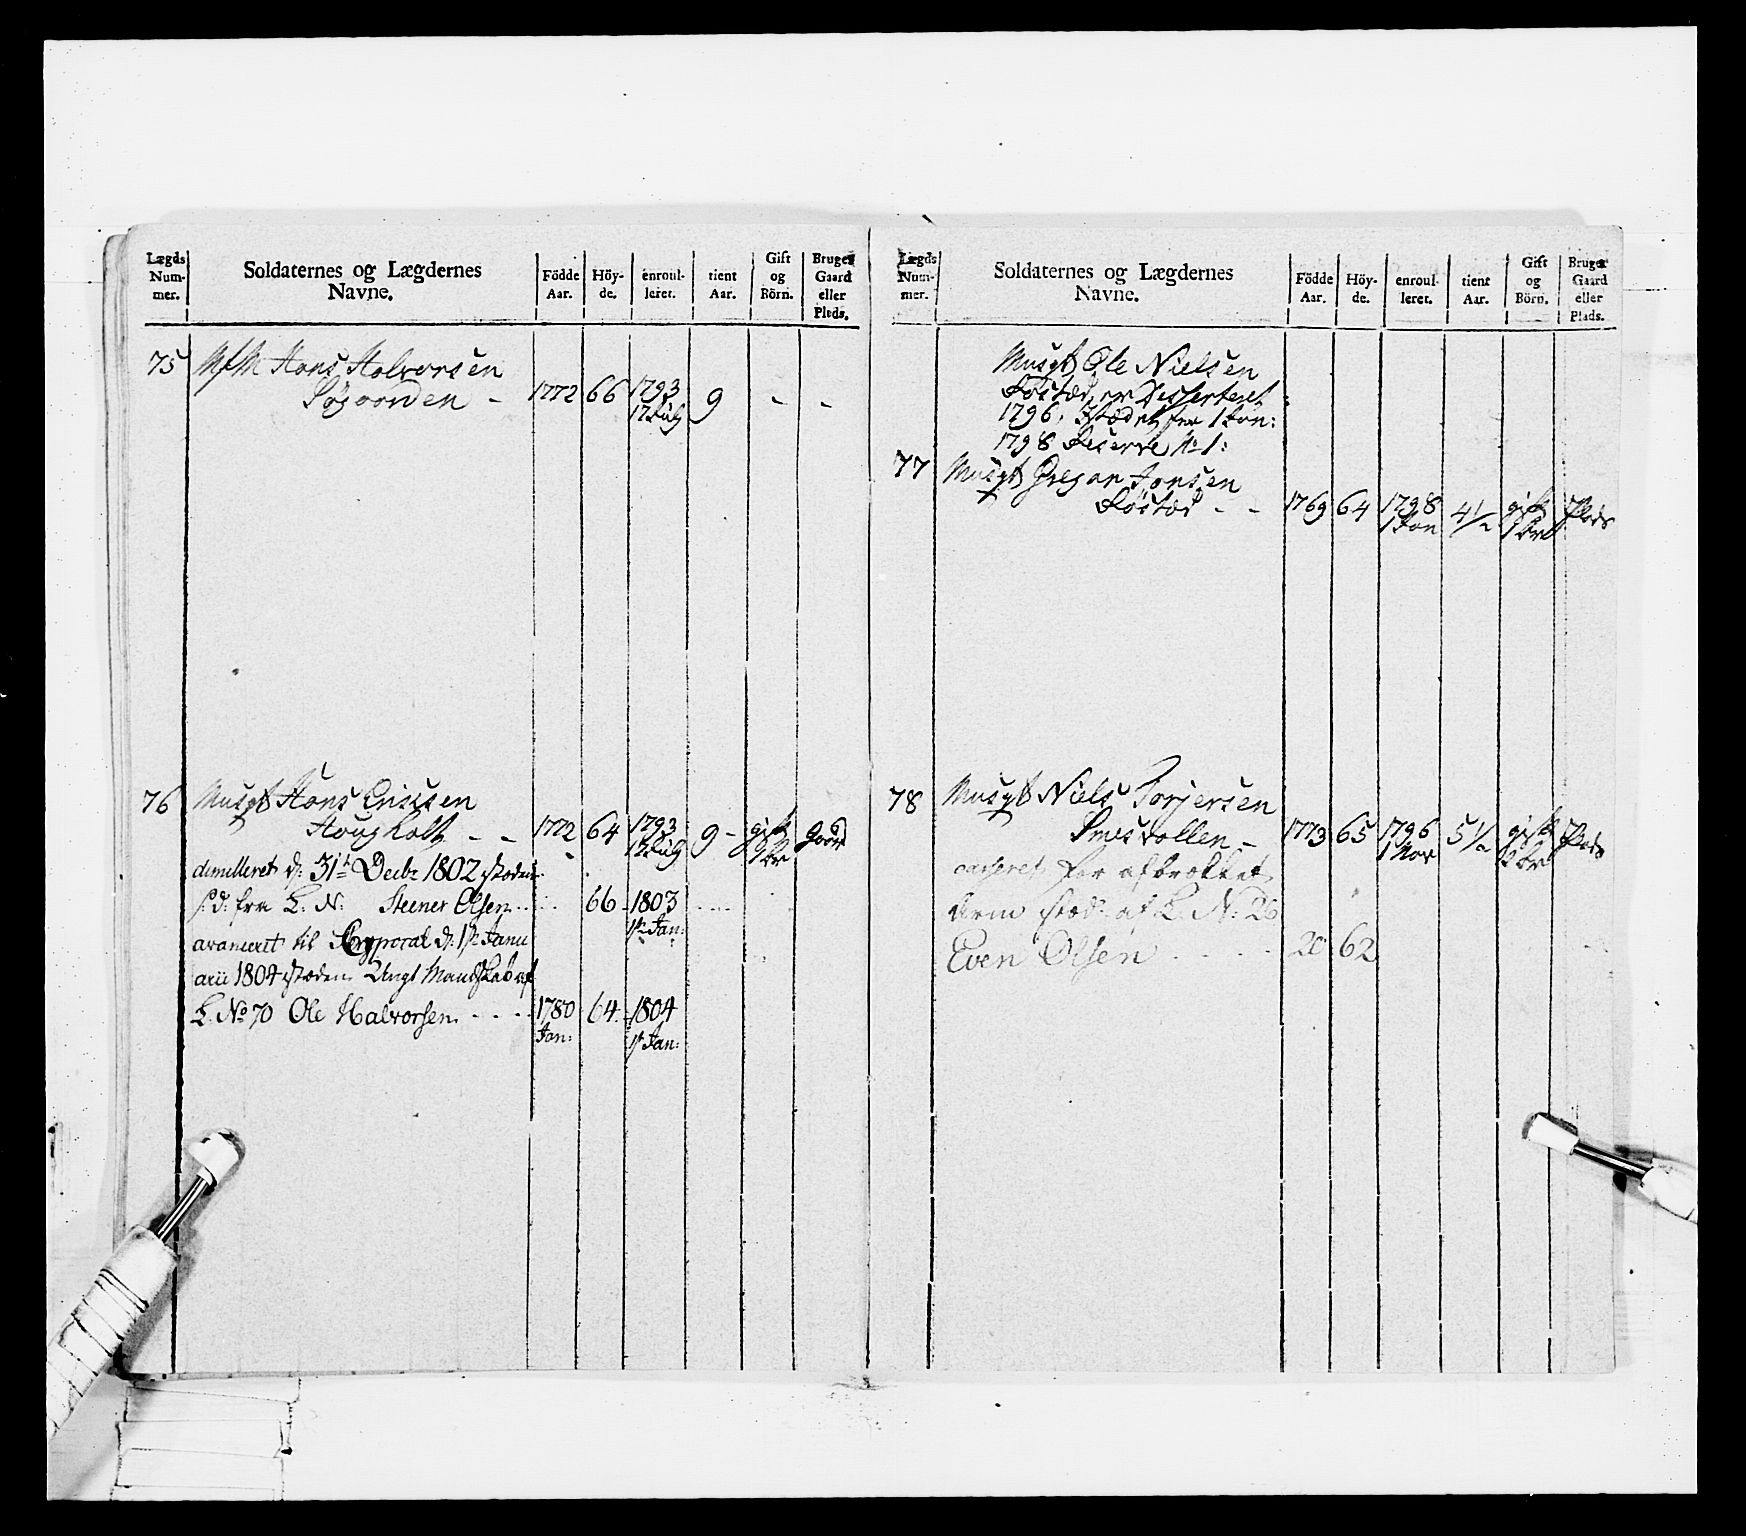 Lægds Num- mer.
Soldaternes og Lægdernes Navne.
Födde Aar.
Höy- de.
enroul- leret.
tient Aar.
Gift og Börn.
Bruger Gaard eller Plads.
75 Hans Halvorsen
1772 66 1793 9 - -
17 July
76 Musqt Hans Ericksen
Hougholt - - 1772 64 1793 9 - gift Gaard
17 July
dimitteret d: 31te Decbr 1802 istæden
f: d: fra L. N: Steener Olsen 66 1803
1ste Jan:
avanceret til Corporal d: 1ste Janu
arii 1804 istæden Ungt Mandskab af
L. No 70 Ole Halvorsen 1780 64 1804
Jan: 1ste Jan:
Lægds Num- mer.
Soldaternes og Lægdernes Navne.
Födde Aar.
Höy- de.
enroul- leret.
tient Aar.
Gift og Börn.
Bruger Gaard eller Plads.
Musqt Ole Nielsen
er Desserteret
1796, 1 Jan:
1798 Reserve No 1:
77 Musqt Gregar Jonsen
1769 64 1798 4½ gift Plads
1 Jan
78 Musqt Niels Torjersen
1773 65 1796 5½ gift Plads
1 Nov
casseret for afbrækket
Arm istæd: af L. N: 26
Even Olsen 20 62